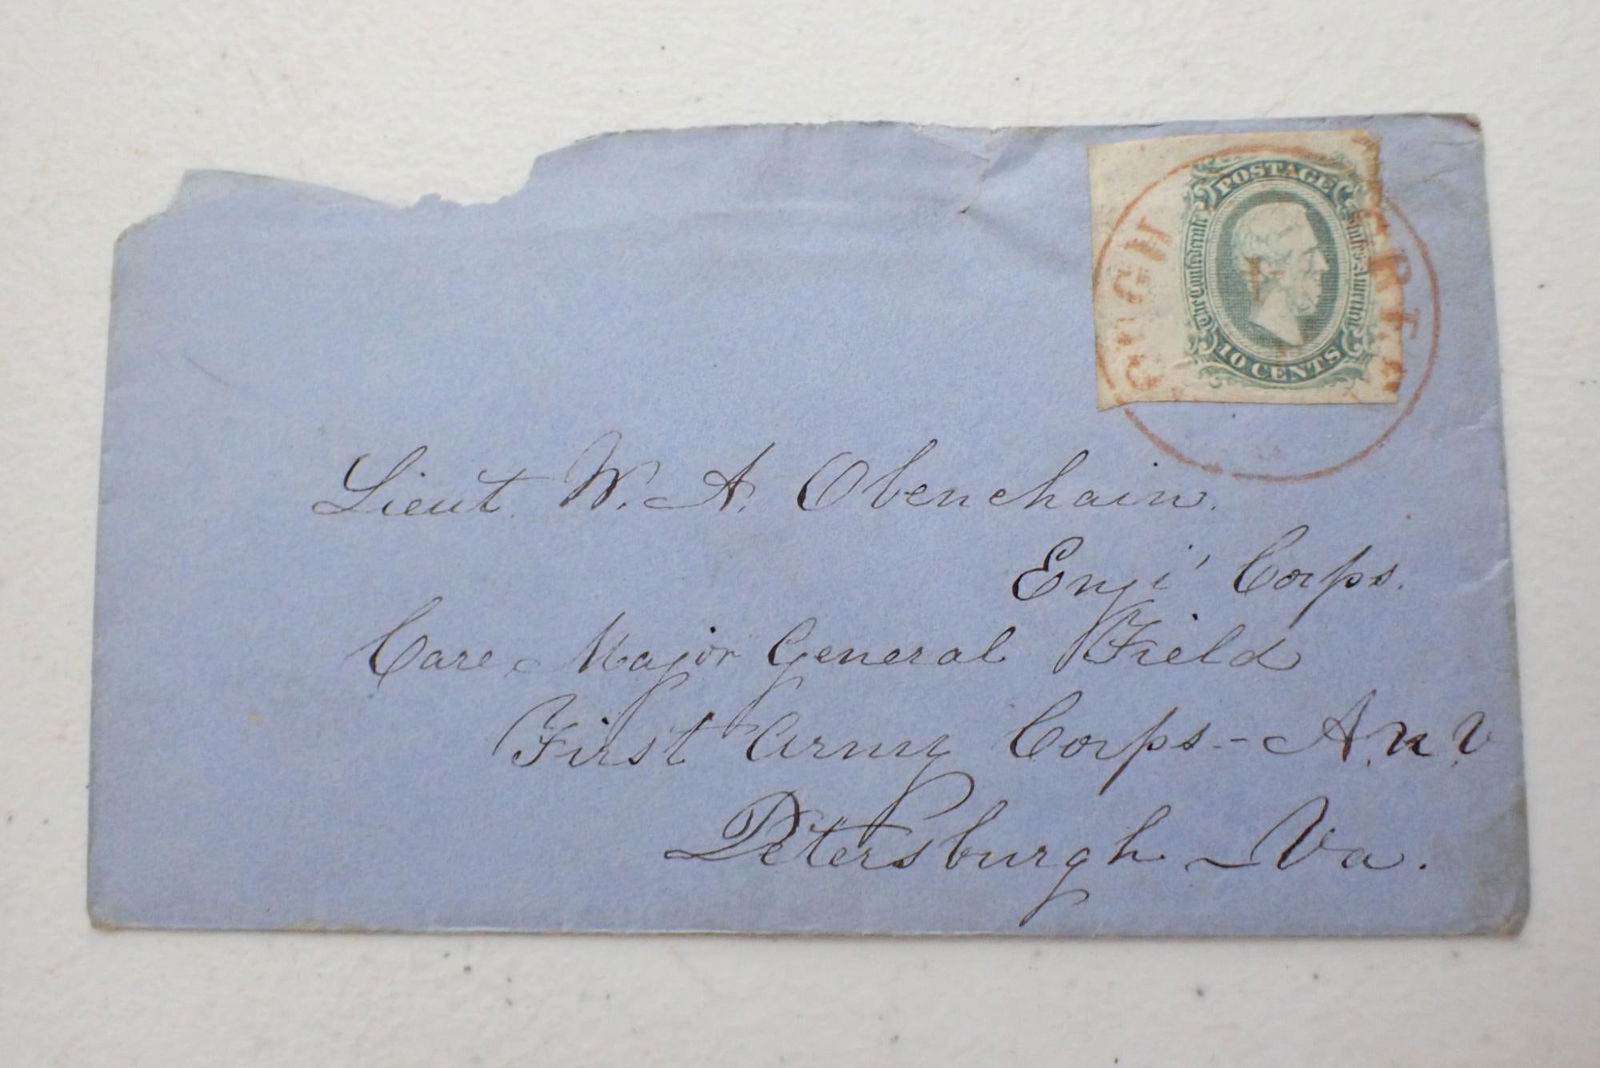 POSTAGE
The Confederate States of America
10 CENTS
Lieut. W. A. Obenchain.
Engr' Corps.
Care Major General Field
First Army Corps - A.N.V
Petersburgh - Va.